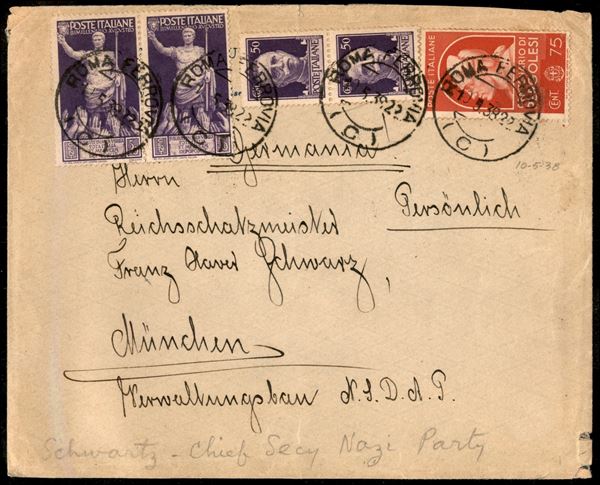 POSTE ITALIANE POSTE ITALIANE
BIMILLENARIO AVGVSTEO BIMILLENARIO AVGVSTEO
50 50
POSTE ITALIANE POSTE ITALIANE
POSTE ITALIANE
75
CENT.
ROMA FERROVIA
ROMA FERROVIA
ROMA FERROVIA
(C)
(C)
(C)
Germania
10-5-38
Herrn
Reichsschatzmeister
Persönlich
Franz Xaver Schwarz,
München
Verwaltungsbau N.S.D.A.P.
Schwartz - Chief Secy Nazi Party